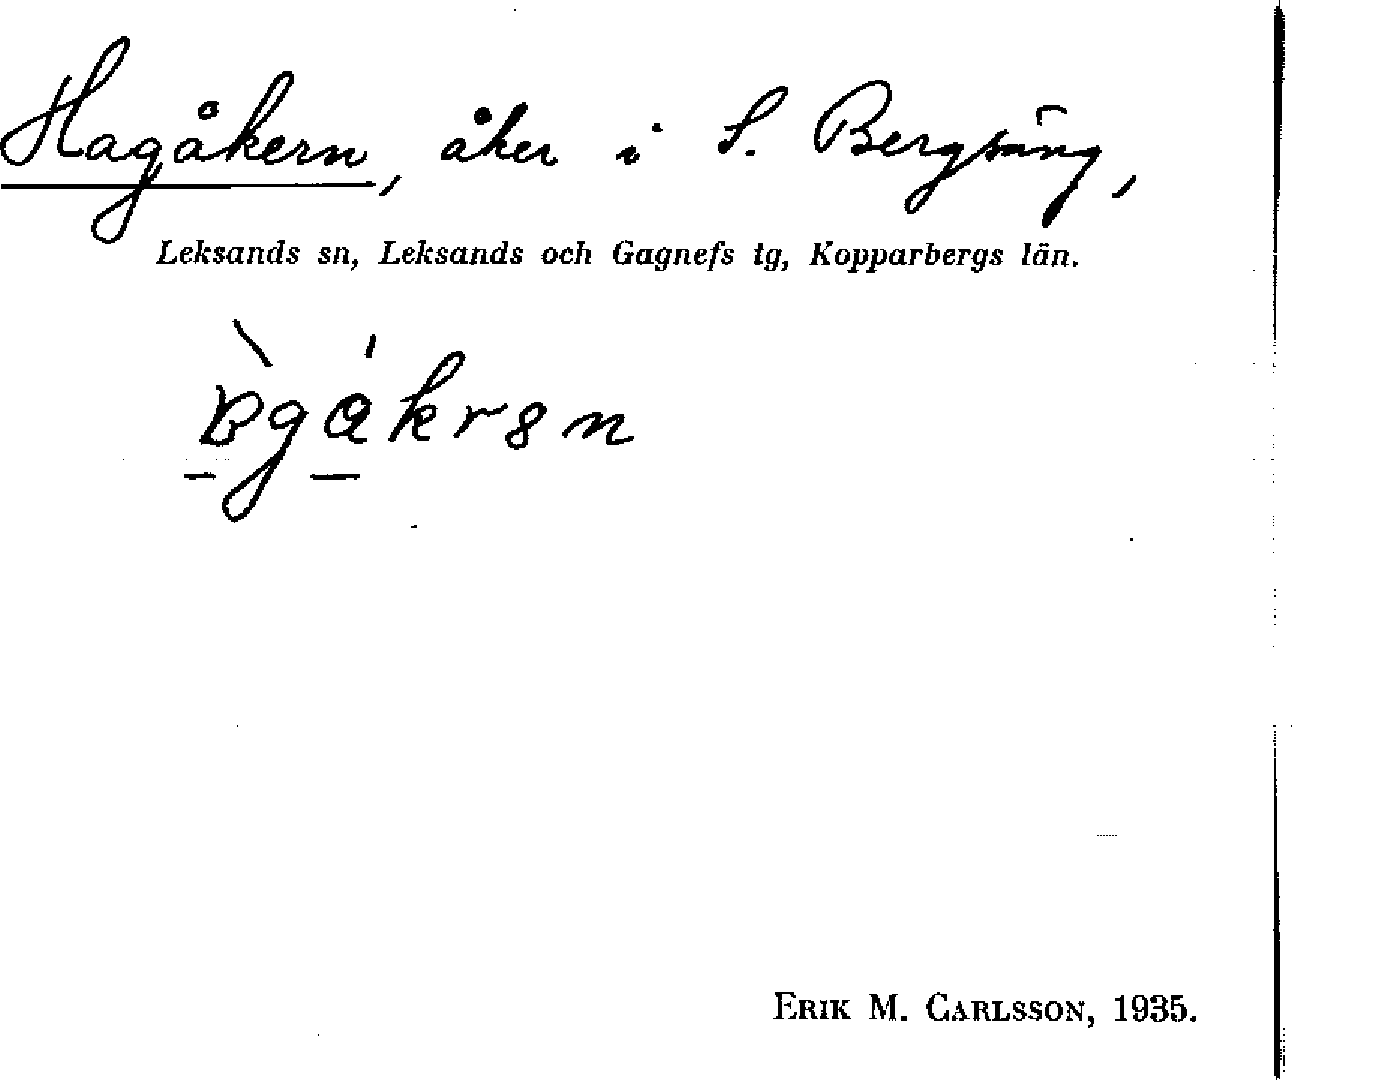 Hagåkern, åker i S. Bergsäng,
Leksands sn, Leksands och Gagnefs tg, Kopparbergs län.
ERIK M. CARLSSON, 1935.